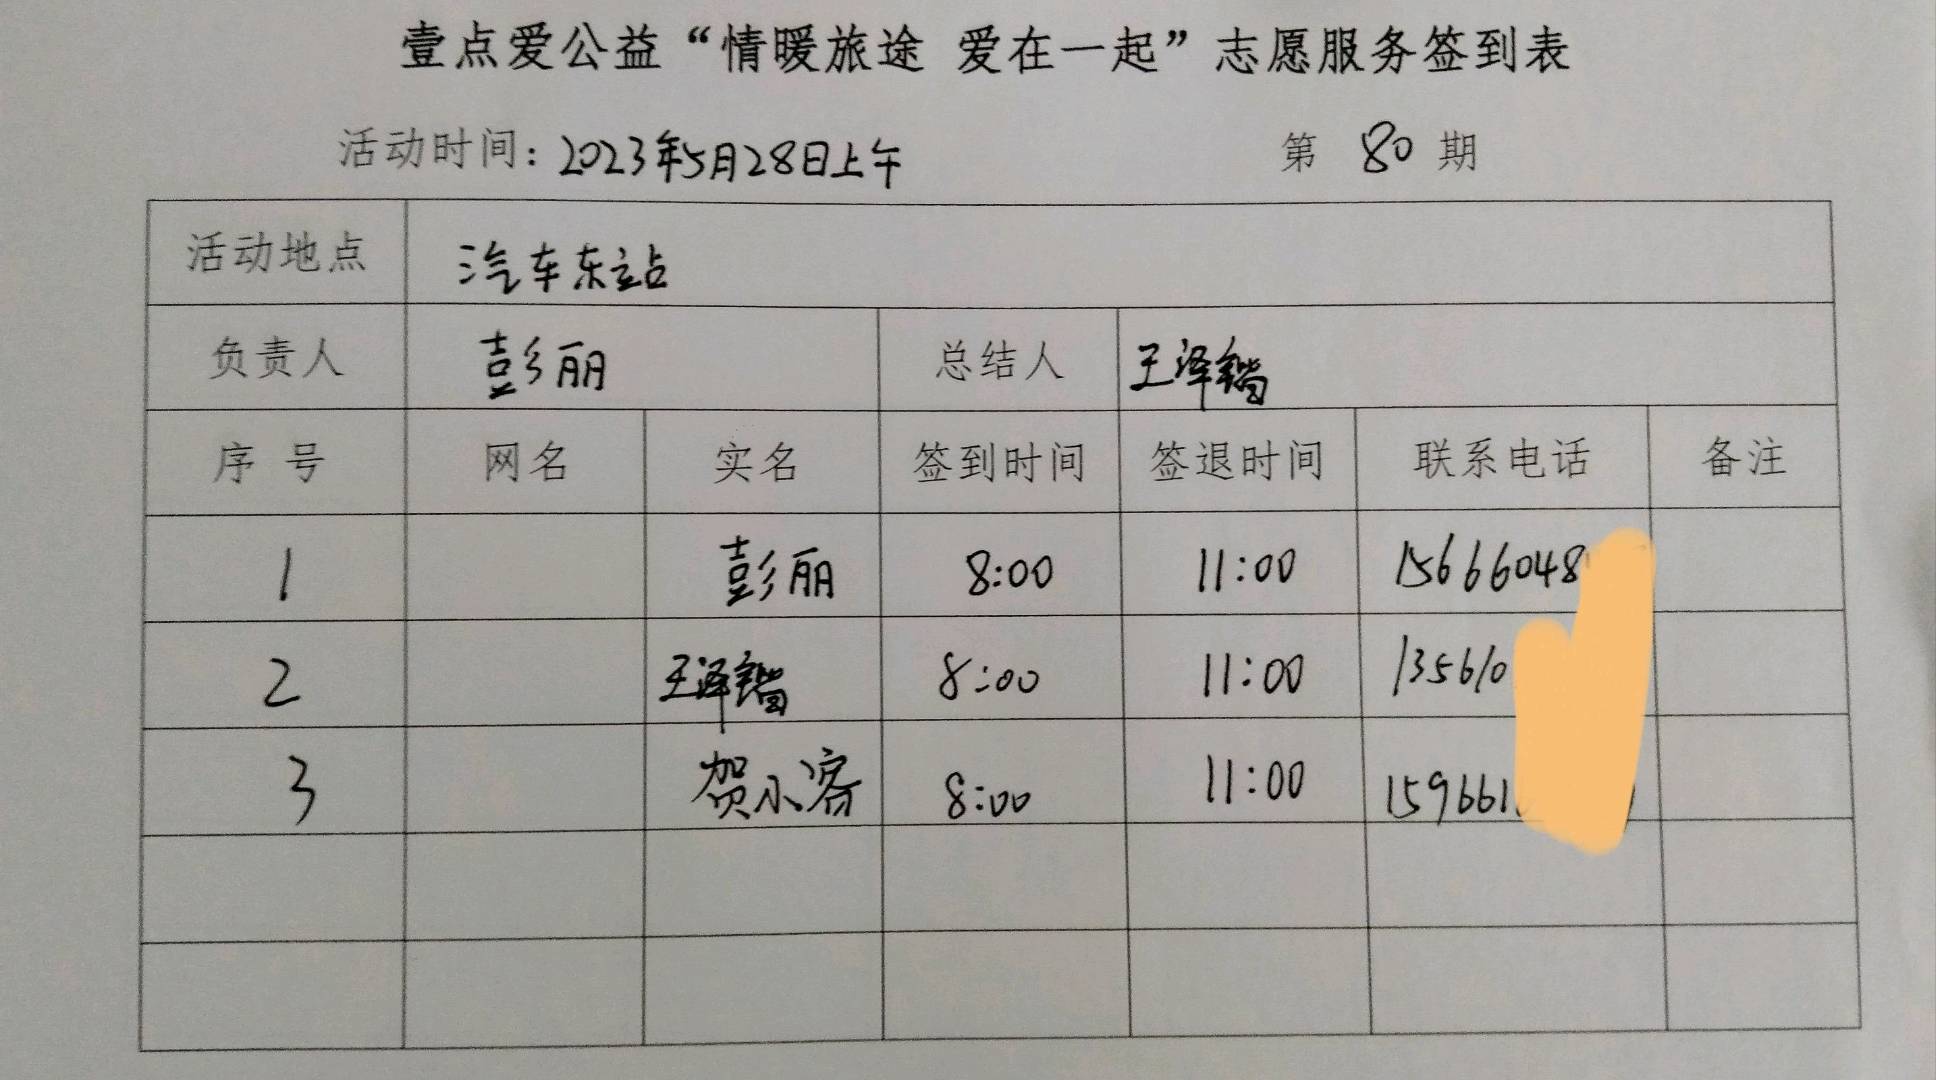 壹点爱公益“情暖旅途 爱在一起”志愿服务签到表
活动时间：2023年5月28日上午 第 80 期
活动地点 汽车东站
负责人 彭丽 总结人 王泽锴
序号 网名 实名 签到时间 签退时间 联系电话 备注
1 彭丽 8:00 11:00 15666048
2 王泽锴 8:00 11:00 135610
3 贺小容 8:00 11:00 159661